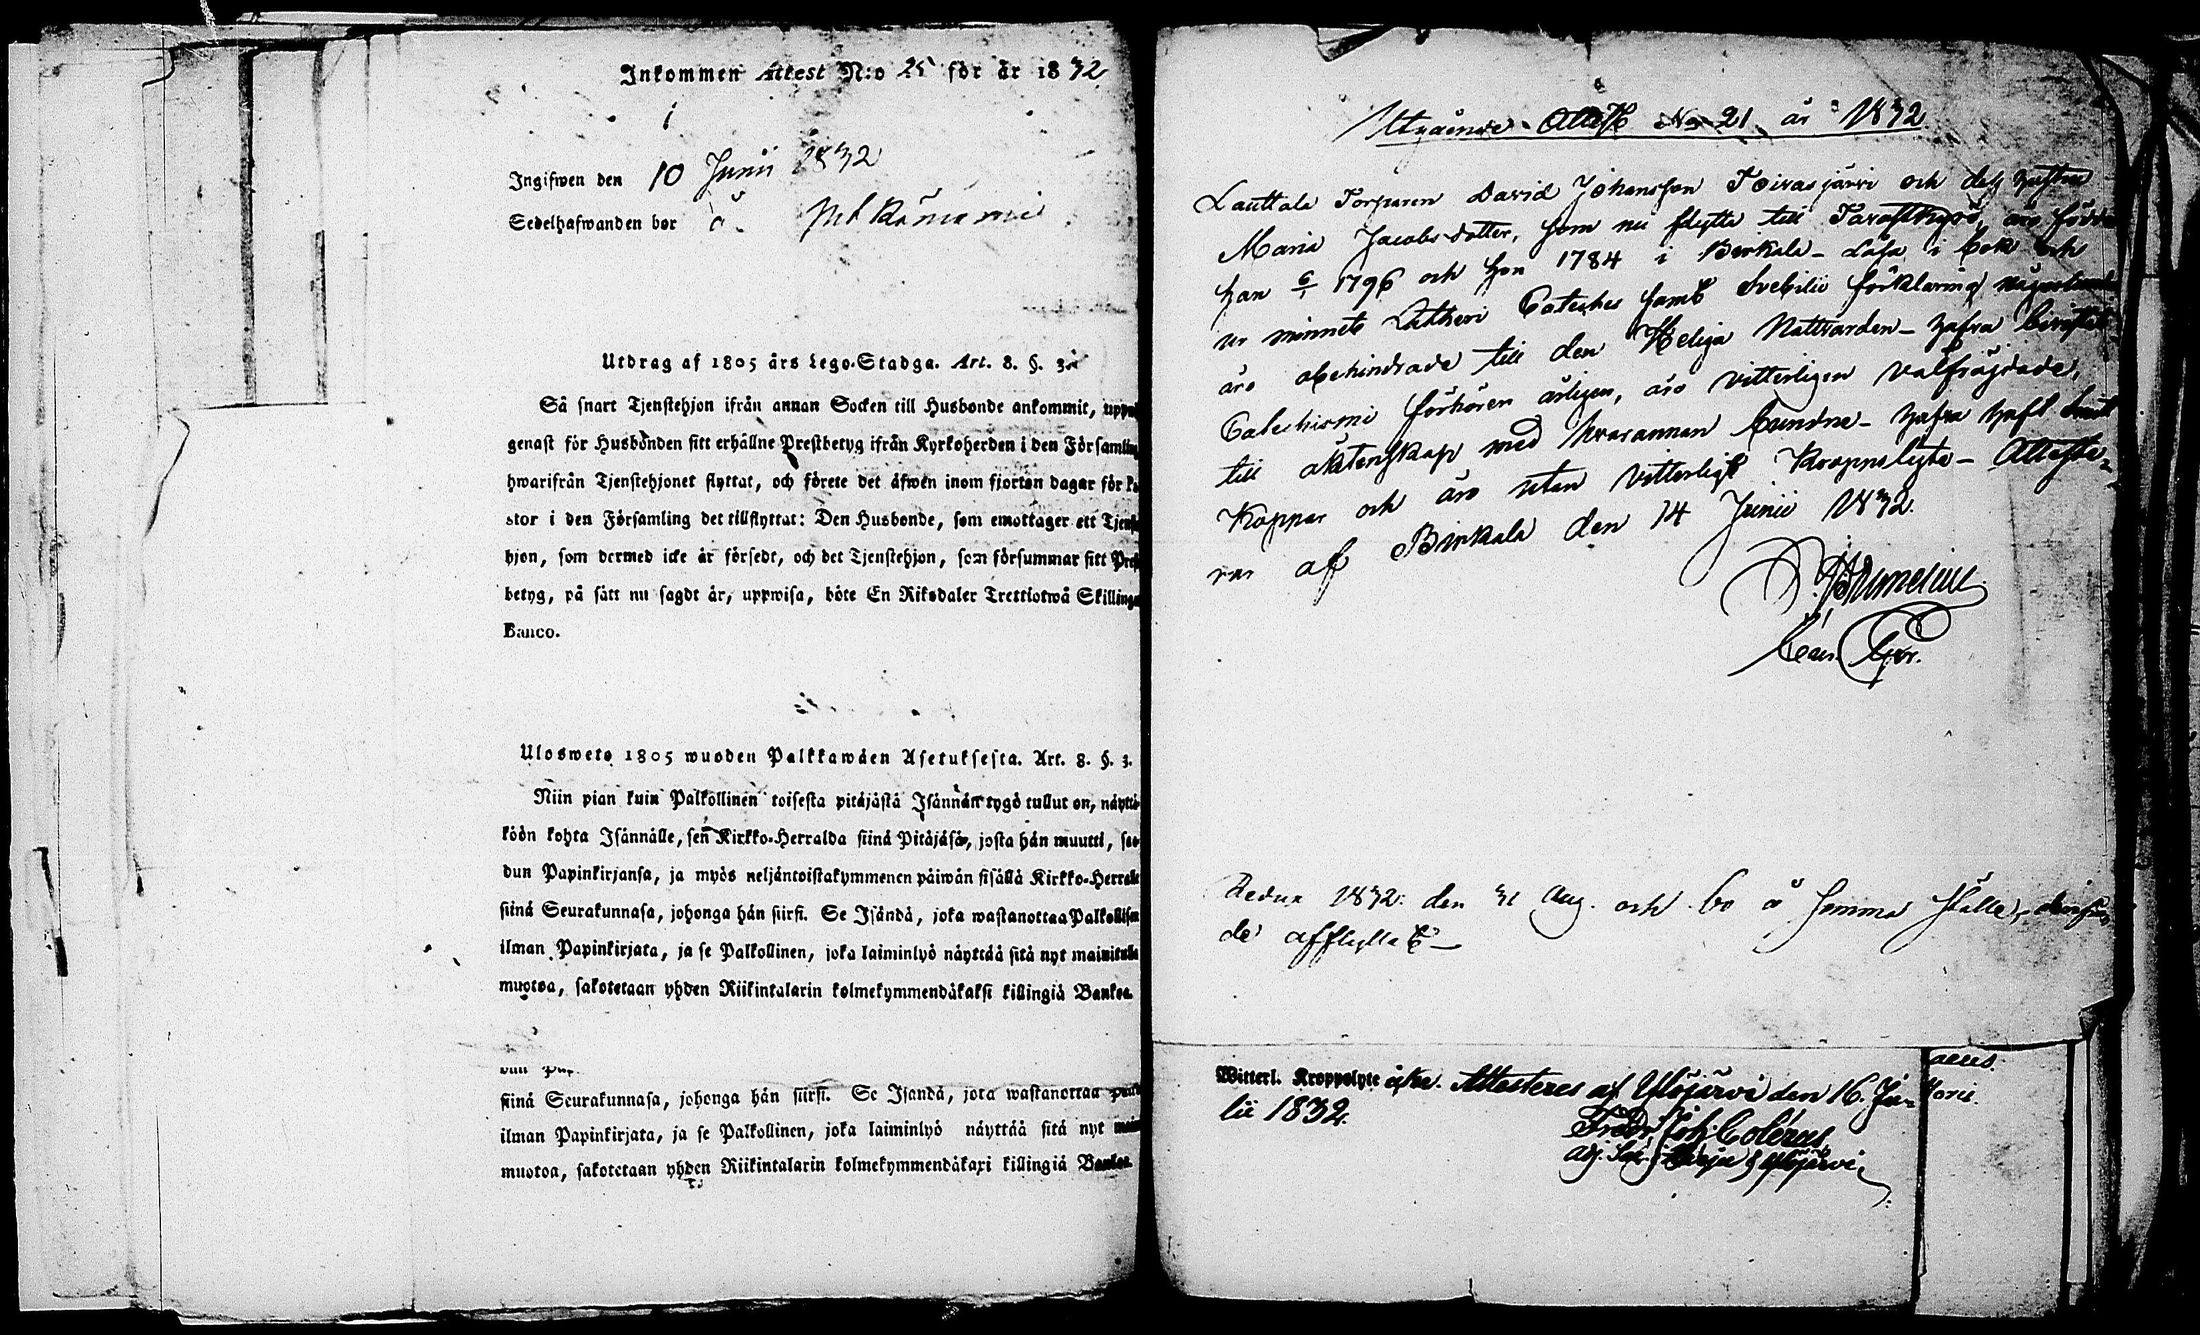 Inkommen Attest N:o 25 för år 1832
Ingifwen den 10 Junii 1832
Sedelhafwanden bor å
Utdrag af 1805 års Lego-Stadga. Art. 8. §. 3.
Så snart Tjenstehjon ifrån annan Socken till Husbonde ankommit,
genast för Husbonden sitt erhållne Prestbetyg ifrån Kyrkoherden i den Församling
hwarifrån Tjenstehjonet flyttat, och förete det åfwen inom fjorton dagar för
stor i den Församling det tillflyttat: Den Husbonde, som emottager ett Tjenst
hjon, som dermed icke år försedt, och det Tjenstehjon, som försummar sitt Prest
betyg, på sått nu sagdt år, uppwisa, böte En Riksdaler Trettiotwå Skillingar
Banco.
Ulosweto 1805 wuoden Palkkawåen Asetuksesta. Art. 8. §. 3.
Niin pian kuin Palkollinen toisesta pitåjåstå Isånnån tygö tullut on, nåyttå-
köön kohta Isånnålle, sen Kirkko-Herralda siinå Pitåjåså, josta hån muutti, saa-
dun Papinkirjansa, ja myös neljåntoistakymmenen påiwån sisållå Kirkko-Herralle
siinå Seurakunnasa, johonga hån siirsi. Se Isåndå, joka wastanottaa Palkollisen
ilman Papinkirjata, ja se Palkollinen, joka laiminlyö nåyttåå sitå nyt mainitulla
muotoa, sakotetaan yhden Riikintalarin kolmekymmendåkaksi killingiå Bankoa.
siinå Seurakunnasa, johonga hån siirsi. Se Isåndå, jota wastanottaa
ilman Papinkirjata, ja se Palkollinen, joka laiminlyö nåyttåå sitå nyt
muotoa, sakotetaan yhden Riikintalarin kolmekymmendåkaxi killingiå Bankoa.
Utgående Attest No 21 år 1832
Lauttala Torparen David Johansson Toivasjärvi och dess hustru
Maria Jacobsdotter, som nu flytta till Tavastkyrö, äro födde
han 6/1 1796 och hon 1784 i Birkala - Läsa i bok och
ur minnet Lutheri Cateches samt Svebilii förklaring
äro obehindrade till den Heliga Nattvarden - hafva bevistat
Catechismi förhören årligen, äro vitterligen välfrägdade,
till äktenskap med hvarannan bundne - hafva haft
Koppor och äro utan vitterligt kroppslyte - Atteste-
ras af Birkala den 14 Junii 1832.
Redux 1832 den 31 Aug. och bo å samma ställe,
de afflyttat -
Witterl. Kroppslyte icke. Attesteras af Ylöjärvi den 16. Ju-
lii 1832.
Fredr. Joh. Colerus